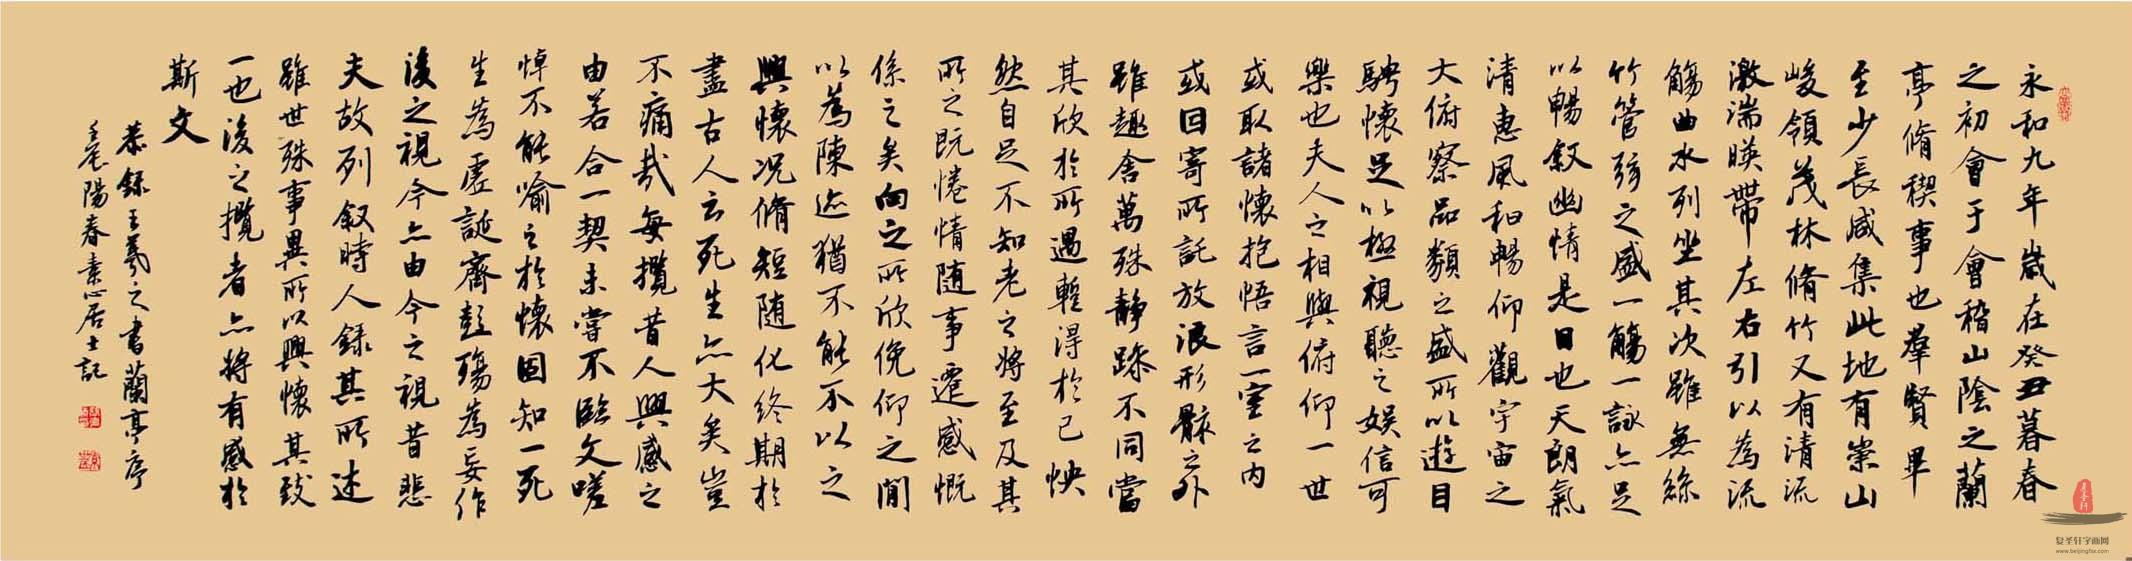 永和九年歲在癸丑暮春
之初會于會稽山陰之蘭
亭脩稧事也羣賢畢
至少長咸集此地有崇山
峻領茂林脩竹又有清流
激湍暎帶左右引以為流
觴曲水列坐其次雖無絲
竹管弦之盛一觴一詠亦足
以暢叙幽情是日也天朗氣
清惠風和暢仰觀宇宙之
大俯察品類之盛所以遊目
騁懷足以極視聽之娛信可
樂也夫人之相與俯仰一世
或取諸懷抱悟言一室之內
或因寄所託放浪形骸之外
雖趣舍萬殊靜躁不同當
其欣於所遇蹔得於己怏
然自足不知老之將至及其
所之既惓情随事遷感慨
係之矣向之所欣俛仰之閒
以為陳迹猶不能不以之
興懷況脩短随化終期於
盡古人云死生亦大矣豈
不痛哉每攬昔人興感之
由若合一契未嘗不臨文嗟
悼不能喻之於懷固知一死
生為虛誕齊彭殤為妄作
後之視今亦由今之視昔悲
夫故列叙時人錄其所述
雖世殊事異所以興懷其致
一也後之攬者亦將有感於
斯文
恭錄王羲之書蘭亭序
陽春素心居士記
复圣轩字画网
www.beijingfsx.com